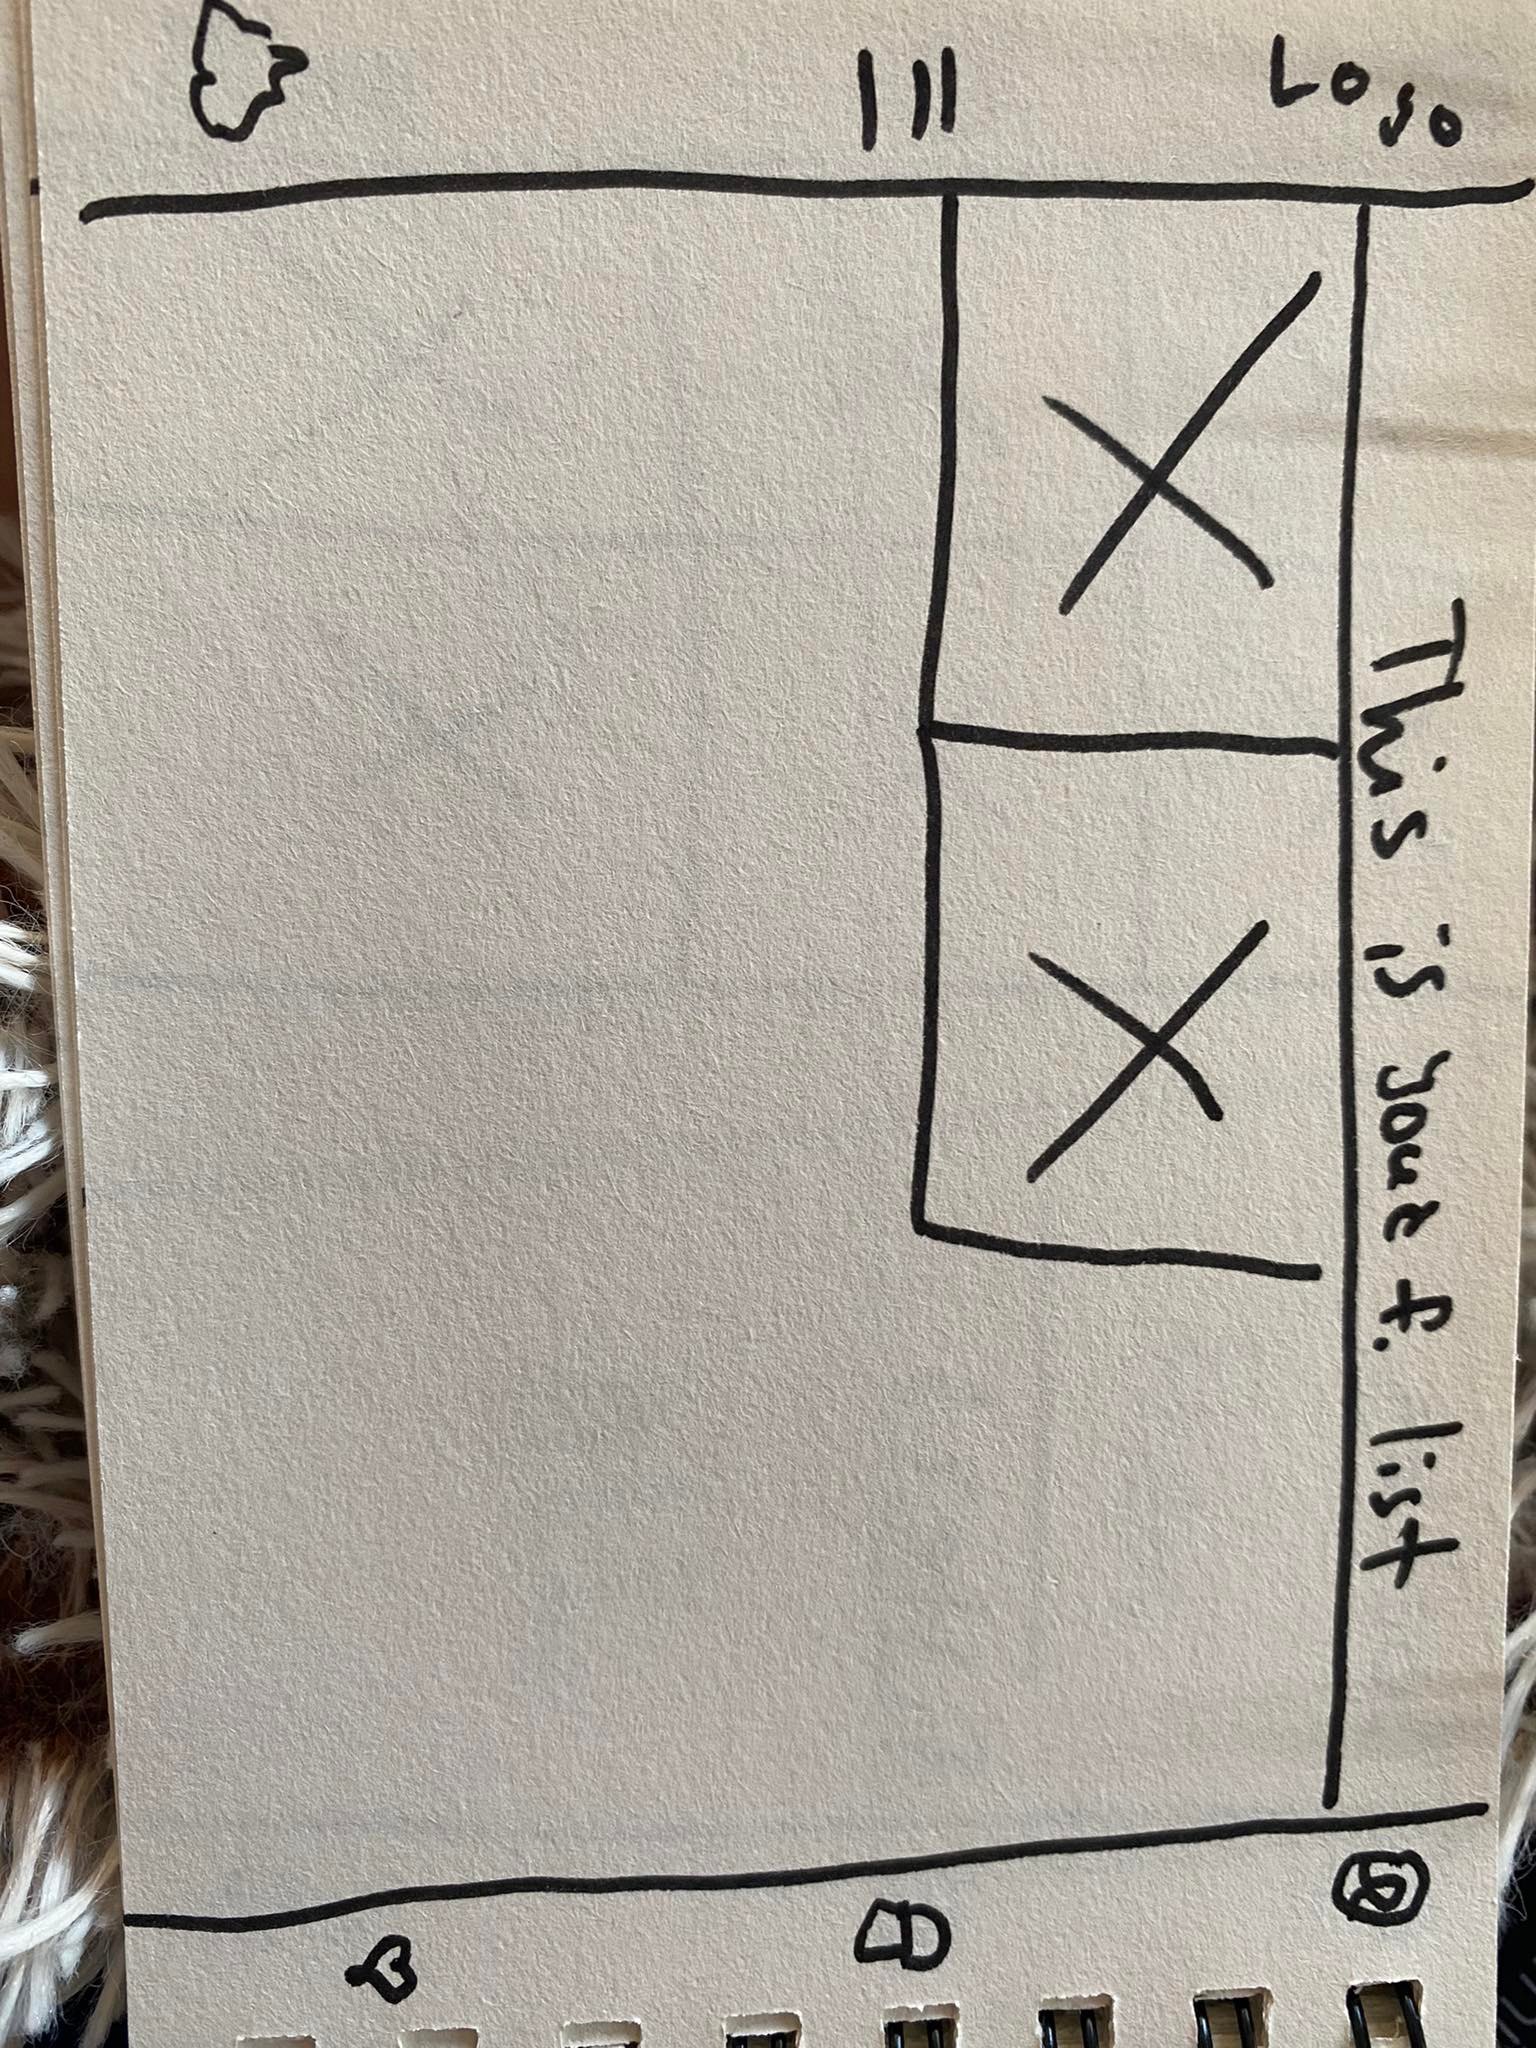 Logo
This is your f. list